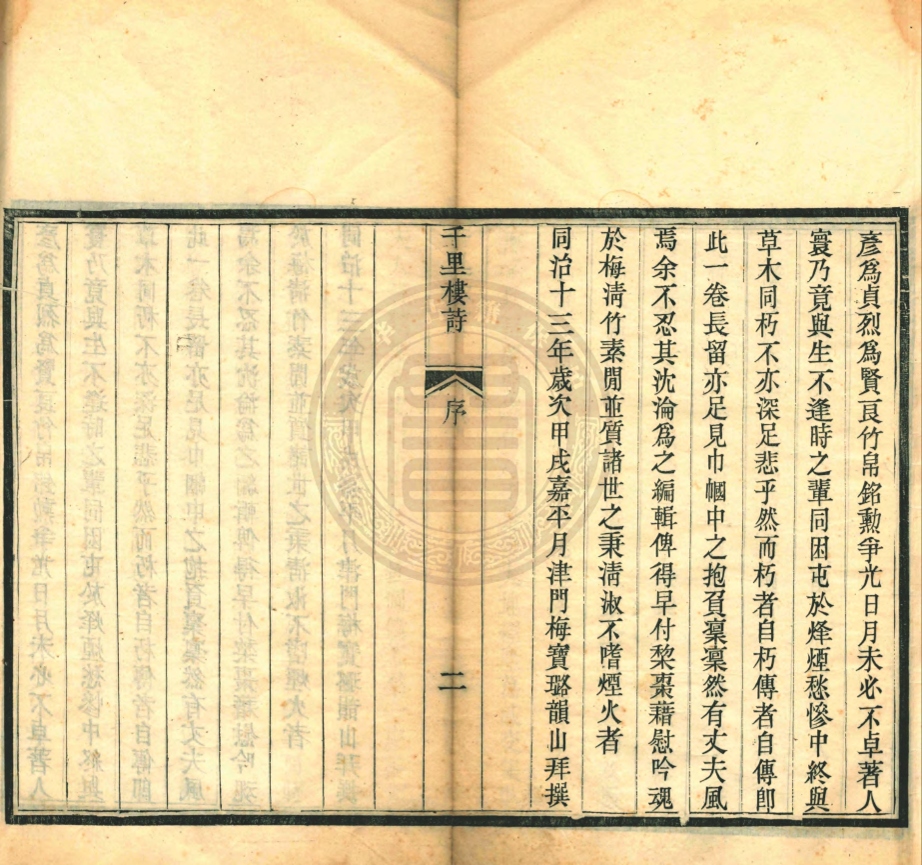 彥爲貞烈爲賢良竹帛銘勲爭光日月未必不卓著人
寰乃竟與生不逢時之輩同困屯於烽煙愁慘中終與
草木同朽不亦深足悲乎然而朽者自朽傳者自傳卽
此一卷長留亦足見巾幗中之抱負稟稟然有丈夫風
焉余不忍其沈淪爲之編輯俾得早付棃棗藉慰吟魂
於梅淸竹素閒並質諸世之秉淸淑不嗜煙火者
同治十三年歲次甲戌嘉平月津門梅寶璐韻山拜撰
千里樓詩 序 二